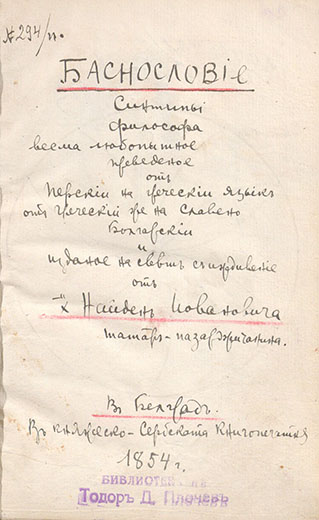 № 294/п.
БАСНОСЛОВІЕ
Синтипы
философа
весма любопытное
преведеное
отъ
Перскій на греческій языкъ
отъ греческій же на славено
Болгарскій
и
издание на светъ с иждивение
отъ
х Найденъ Иовановича
татаръ-пазарджичанина.
Въ Белградъ.
Въ княжеско-Сербската Книгопечатня
1854 г.
Тодоръ Д. Плочевъ